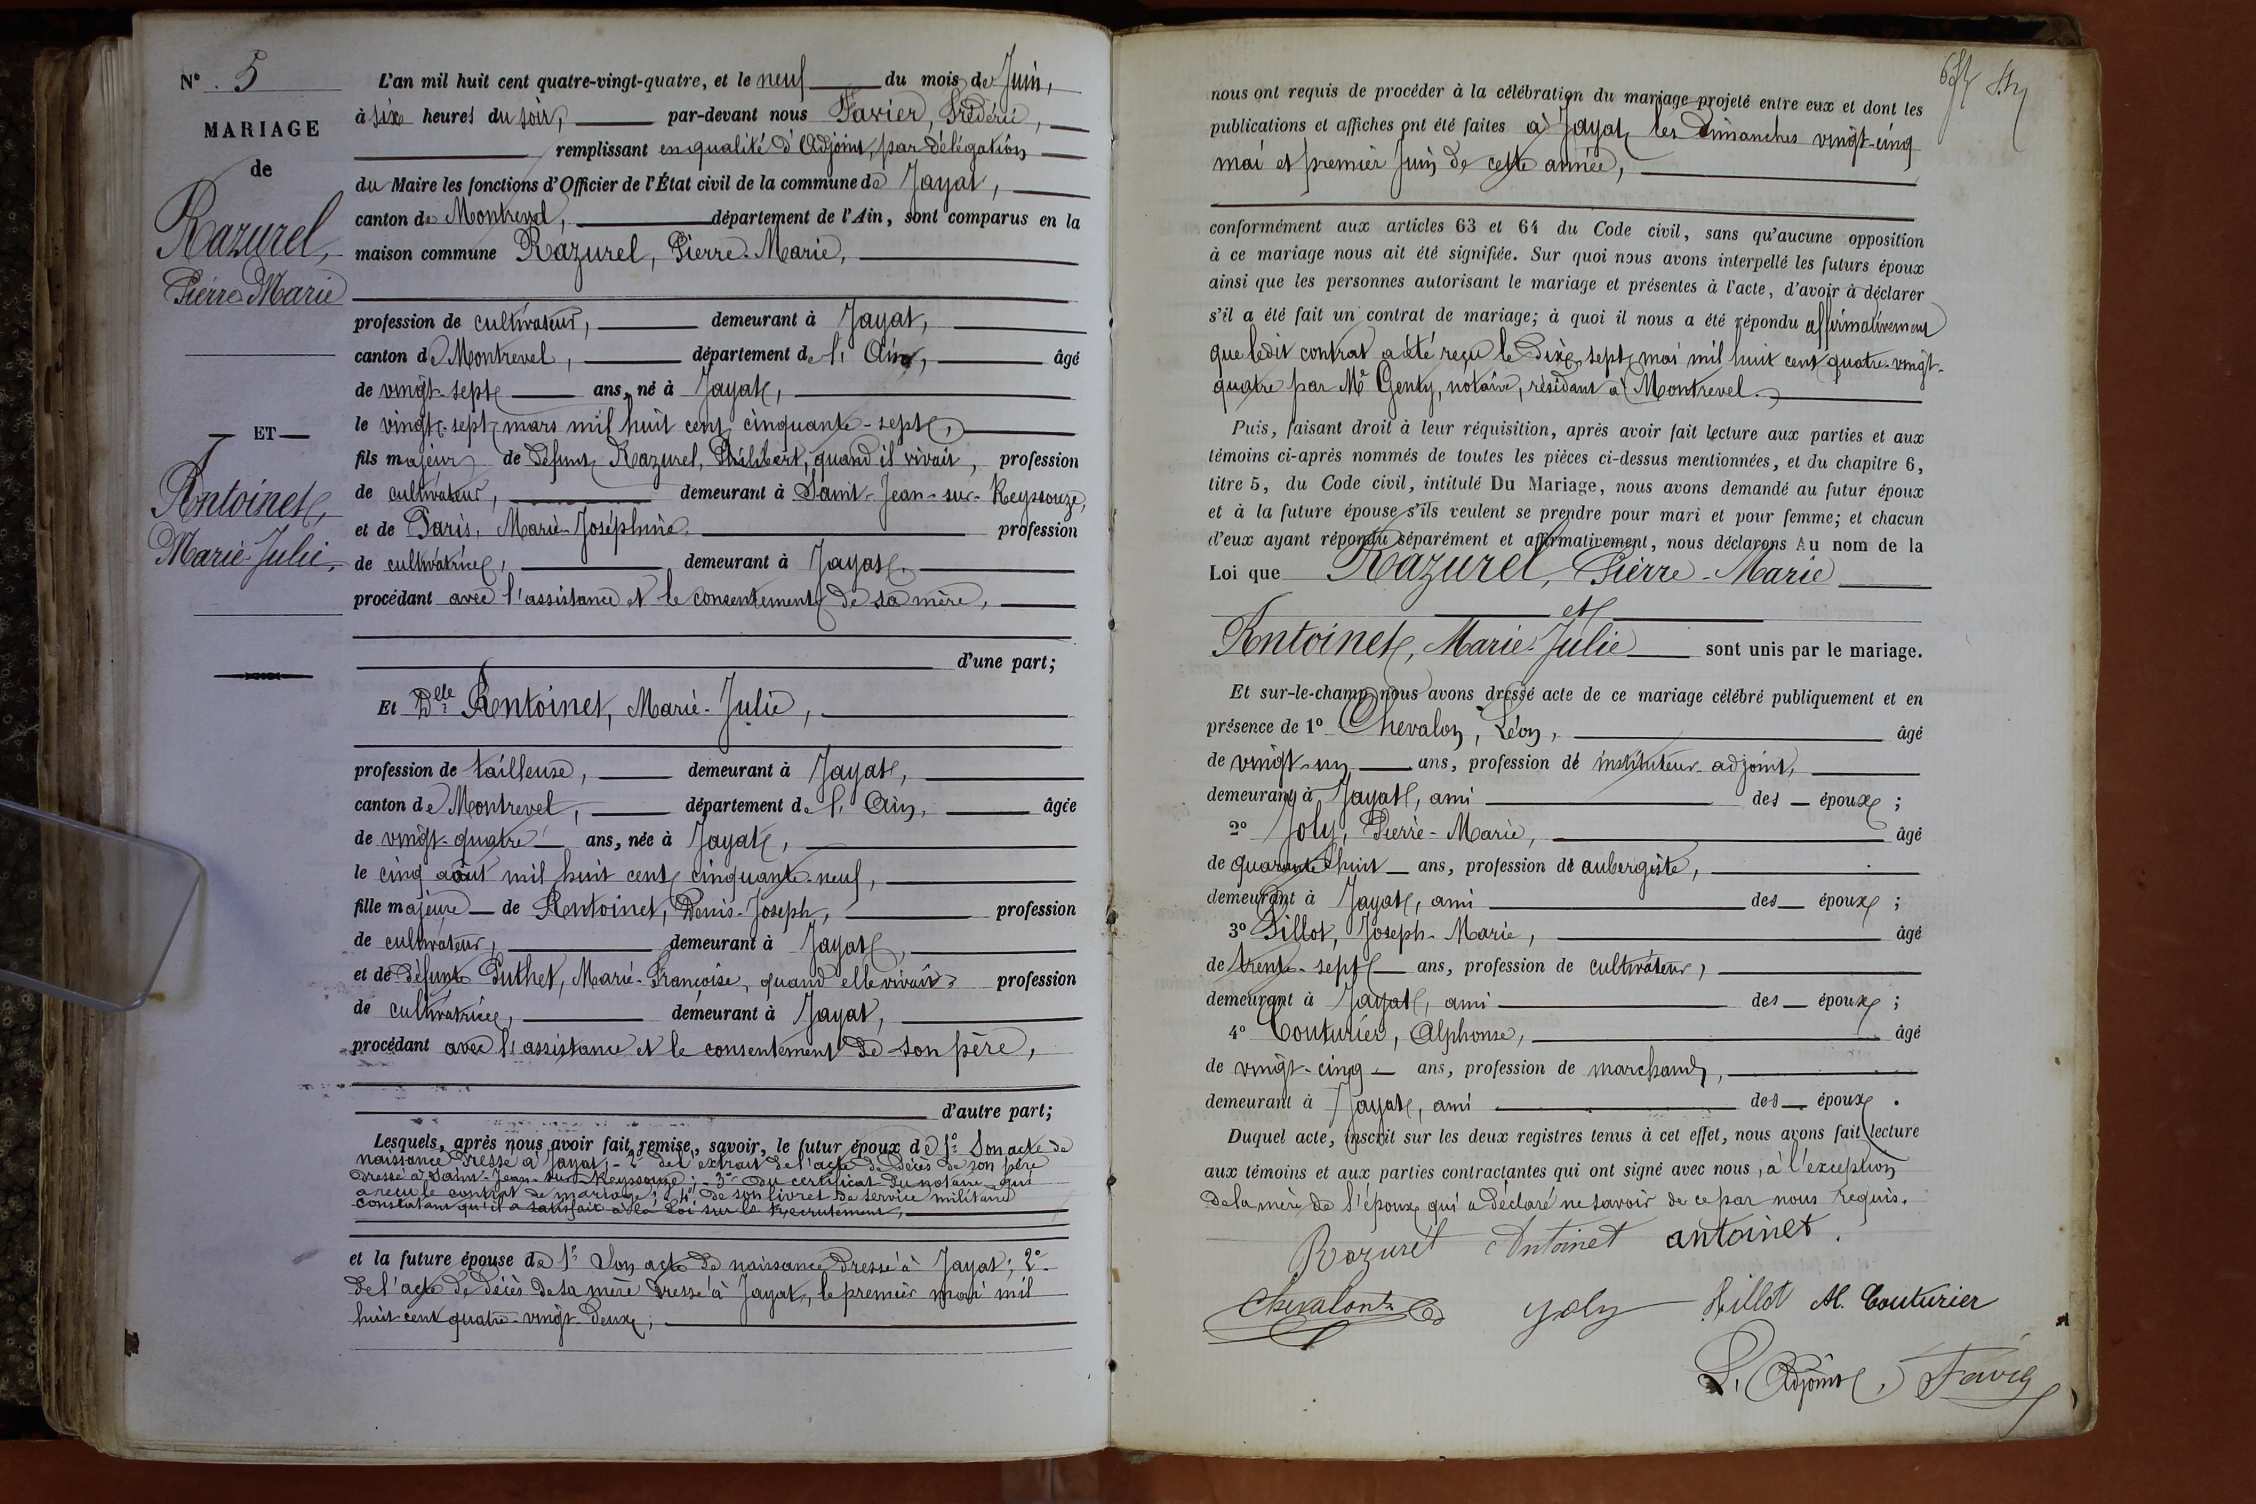 N° 5
MARIAGE
de
Razurel,
Pierre Marie
ET
Antoinet,
Marie-Julie,
L'an mil huit cent quatre-vingt-quatre, et le neuf du mois de Juin,
à six heures du soir, par-devant nous Favier, Frédéric,
remplissant en qualité d'Adjoint, par délégation
du Maire les fonctions d'Officier de l'État civil de la commune de Jayat,
canton de Montrevel, département de l'Ain, sont comparus en la
maison commune Razurel, Pierre-Marie,
profession de cultivateur, demeurant à Jayat,
canton de Montrevel, département de l'Ain, âgé
de vingt-sept ans, né à Jayat,
le vingt-sept mars mil huit cent cinquante-sept,
fils majeur de défunt Razurel, Philibert, quand il vivait, profession
de cultivateur, demeurant à Saint-Jean-sur-Reyssouze,
et de Paris, Marie-Joséphine, profession
de cultivatrice, demeurant à Jayat,
procédant avec l'assistance et le consentement de sa mère,
d'une part;
Et Delle Antoinet, Marie-Julie,
profession de tailleuse, demeurant à Jayat,
canton de Montrevel, département de l'Ain, âgée
de vingt-quatre ans, née à Jayat,
le cinq août mil huit cent cinquante-neuf,
fille majeure de Antoinet, Denis-Joseph, profession
de cultivateur, demeurant à Jayat,
et de défunte Puthet, Marie-Françoise, quand elle vivait, profession
de cultivatrice, demeurant à Jayat,
procédant avec l'assistance et le consentement de son père,
d'autre part;
Lesquels, après nous avoir fait remise, savoir, le futur époux de 1° Son acte de
naissance dressé à Jayat; - 2° de l'extrait de l'acte de décès de son père
dressé à Saint-Jean-sur-Reyssouze; - 3° du certificat du notaire qui
a reçu le contrat de mariage; 4° de son livret de service militaire
constatant qu'il a satisfait à la Loi sur le Recrutement,
et la future épouse de 1° Son acte de naissance dressé à Jayat; 2°
de l'acte de décès de sa mère dressé à Jayat, le premier mai mil
huit cent quatre-vingt-deux;
nous ont requis de procéder à la célébration du mariage projeté entre eux et dont les
publications et affiches ont été faites à Jayat les dimanches vingt-cinq
mai et premier Juin de cette année,
conformément aux articles 63 et 64 du Code civil, sans qu'aucune opposition
à ce mariage nous ait été signifiée. Sur quoi nous avons interpellé les futurs époux
ainsi que les personnes autorisant le mariage et présentes à l'acte, d'avoir à déclarer
s'il a été fait un contrat de mariage; à quoi il nous a été répondu affirmativement
que ledit contrat a été reçu le dix-sept mai mil huit cent quatre-vingt-
quatre par Me Genty, notaire, résidant à Montrevel.
Puis, faisant droit à leur réquisition, après avoir fait lecture aux parties et aux
témoins ci-après nommés de toutes les pièces ci-dessus mentionnées, et du chapitre 6,
titre 5, du Code civil, intitulé Du Mariage, nous avons demandé au futur époux
et à la future épouse s'ils veulent se prendre pour mari et pour femme; et chacun
d'eux ayant répondu séparément et affirmativement, nous déclarons Au nom de la
Loi que Razurel, Pierre-Marie
et
Antoinet, Marie-Julie sont unis par le mariage.
Et sur-le-champ nous avons dressé acte de ce mariage célébré publiquement et en
présence de 1° Chevalon, Léon, âgé
de vingt-un ans, profession de instituteur-adjoint,
demeurant à Jayat, ami des époux;
2° Joly, Pierre-Marie, âgé
de quarante-huit ans, profession de aubergiste,
demeurant à Jayat, ami des époux;
3° Pillot, Joseph-Marie, âgé
de trente-sept ans, profession de cultivateur,
demeurant à Jayat, ami des époux;
4° Couturier, Alphonse, âgé
de vingt-cinq ans, profession de marchand,
demeurant à Jayat, ami des époux.
Duquel acte, inscrit sur les deux registres tenus à cet effet, nous avons fait lecture
aux témoins et aux parties contractantes qui ont signé avec nous, à l'exception
de la mère de l'époux qui a déclaré ne savoir de ce par nous requis.
Razurel Antoinet antoinet.
Chevalon L. Joly Pillot Al. Couturier
L'Adjoint, Favier